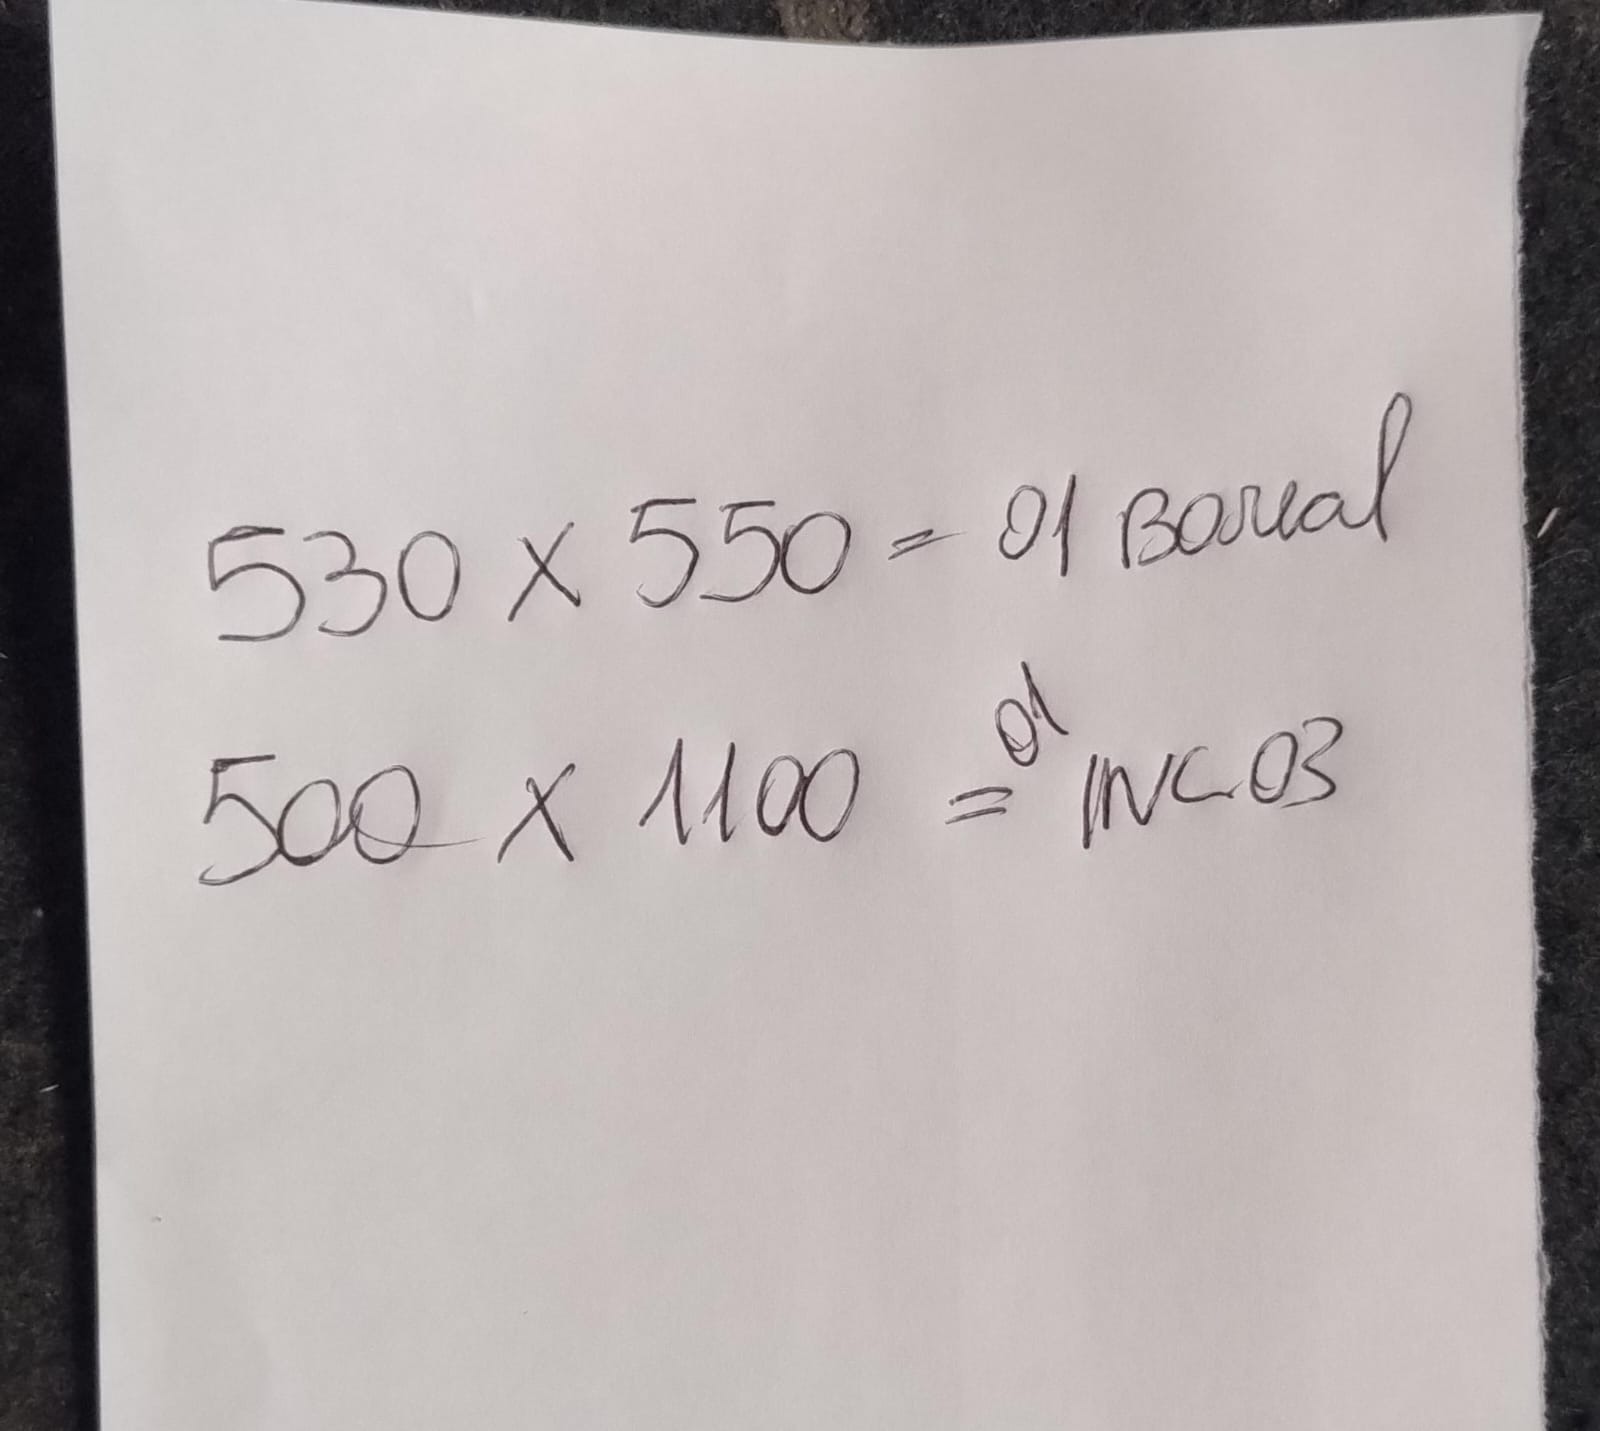 530 x 550 = 01 Boreal
500 x 1100 = 01 INC.03